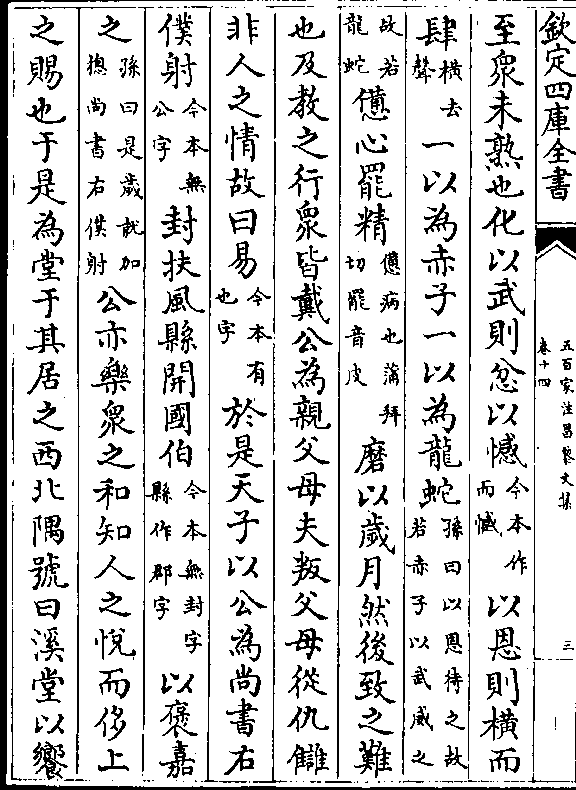 欽定四庫全書
五百家注昌黎文集
卷十四
三
至衆未熟也化以武則忿以憾今本作而憾以恩則橫而
肆橫去聲一以為赤子一以為龍蛇孫曰以恩待之故若赤子以武威之
故若龍蛇憊心罷精憊病也蒲拜切罷音皮磨以歲月然後致之難
也及教之行衆皆戴公為親父母夫叛父母從仇讎
非人之情故曰易今本有也字於是天子以公為尚書右
僕射今本無公字封扶風縣開國伯今本無封字縣作郡字以褒嘉
之孫曰是歲就加總尚書右僕射公亦樂衆之和知人之悅而侈上
之賜也于是為堂于其居之西北隅號曰溪堂以饗